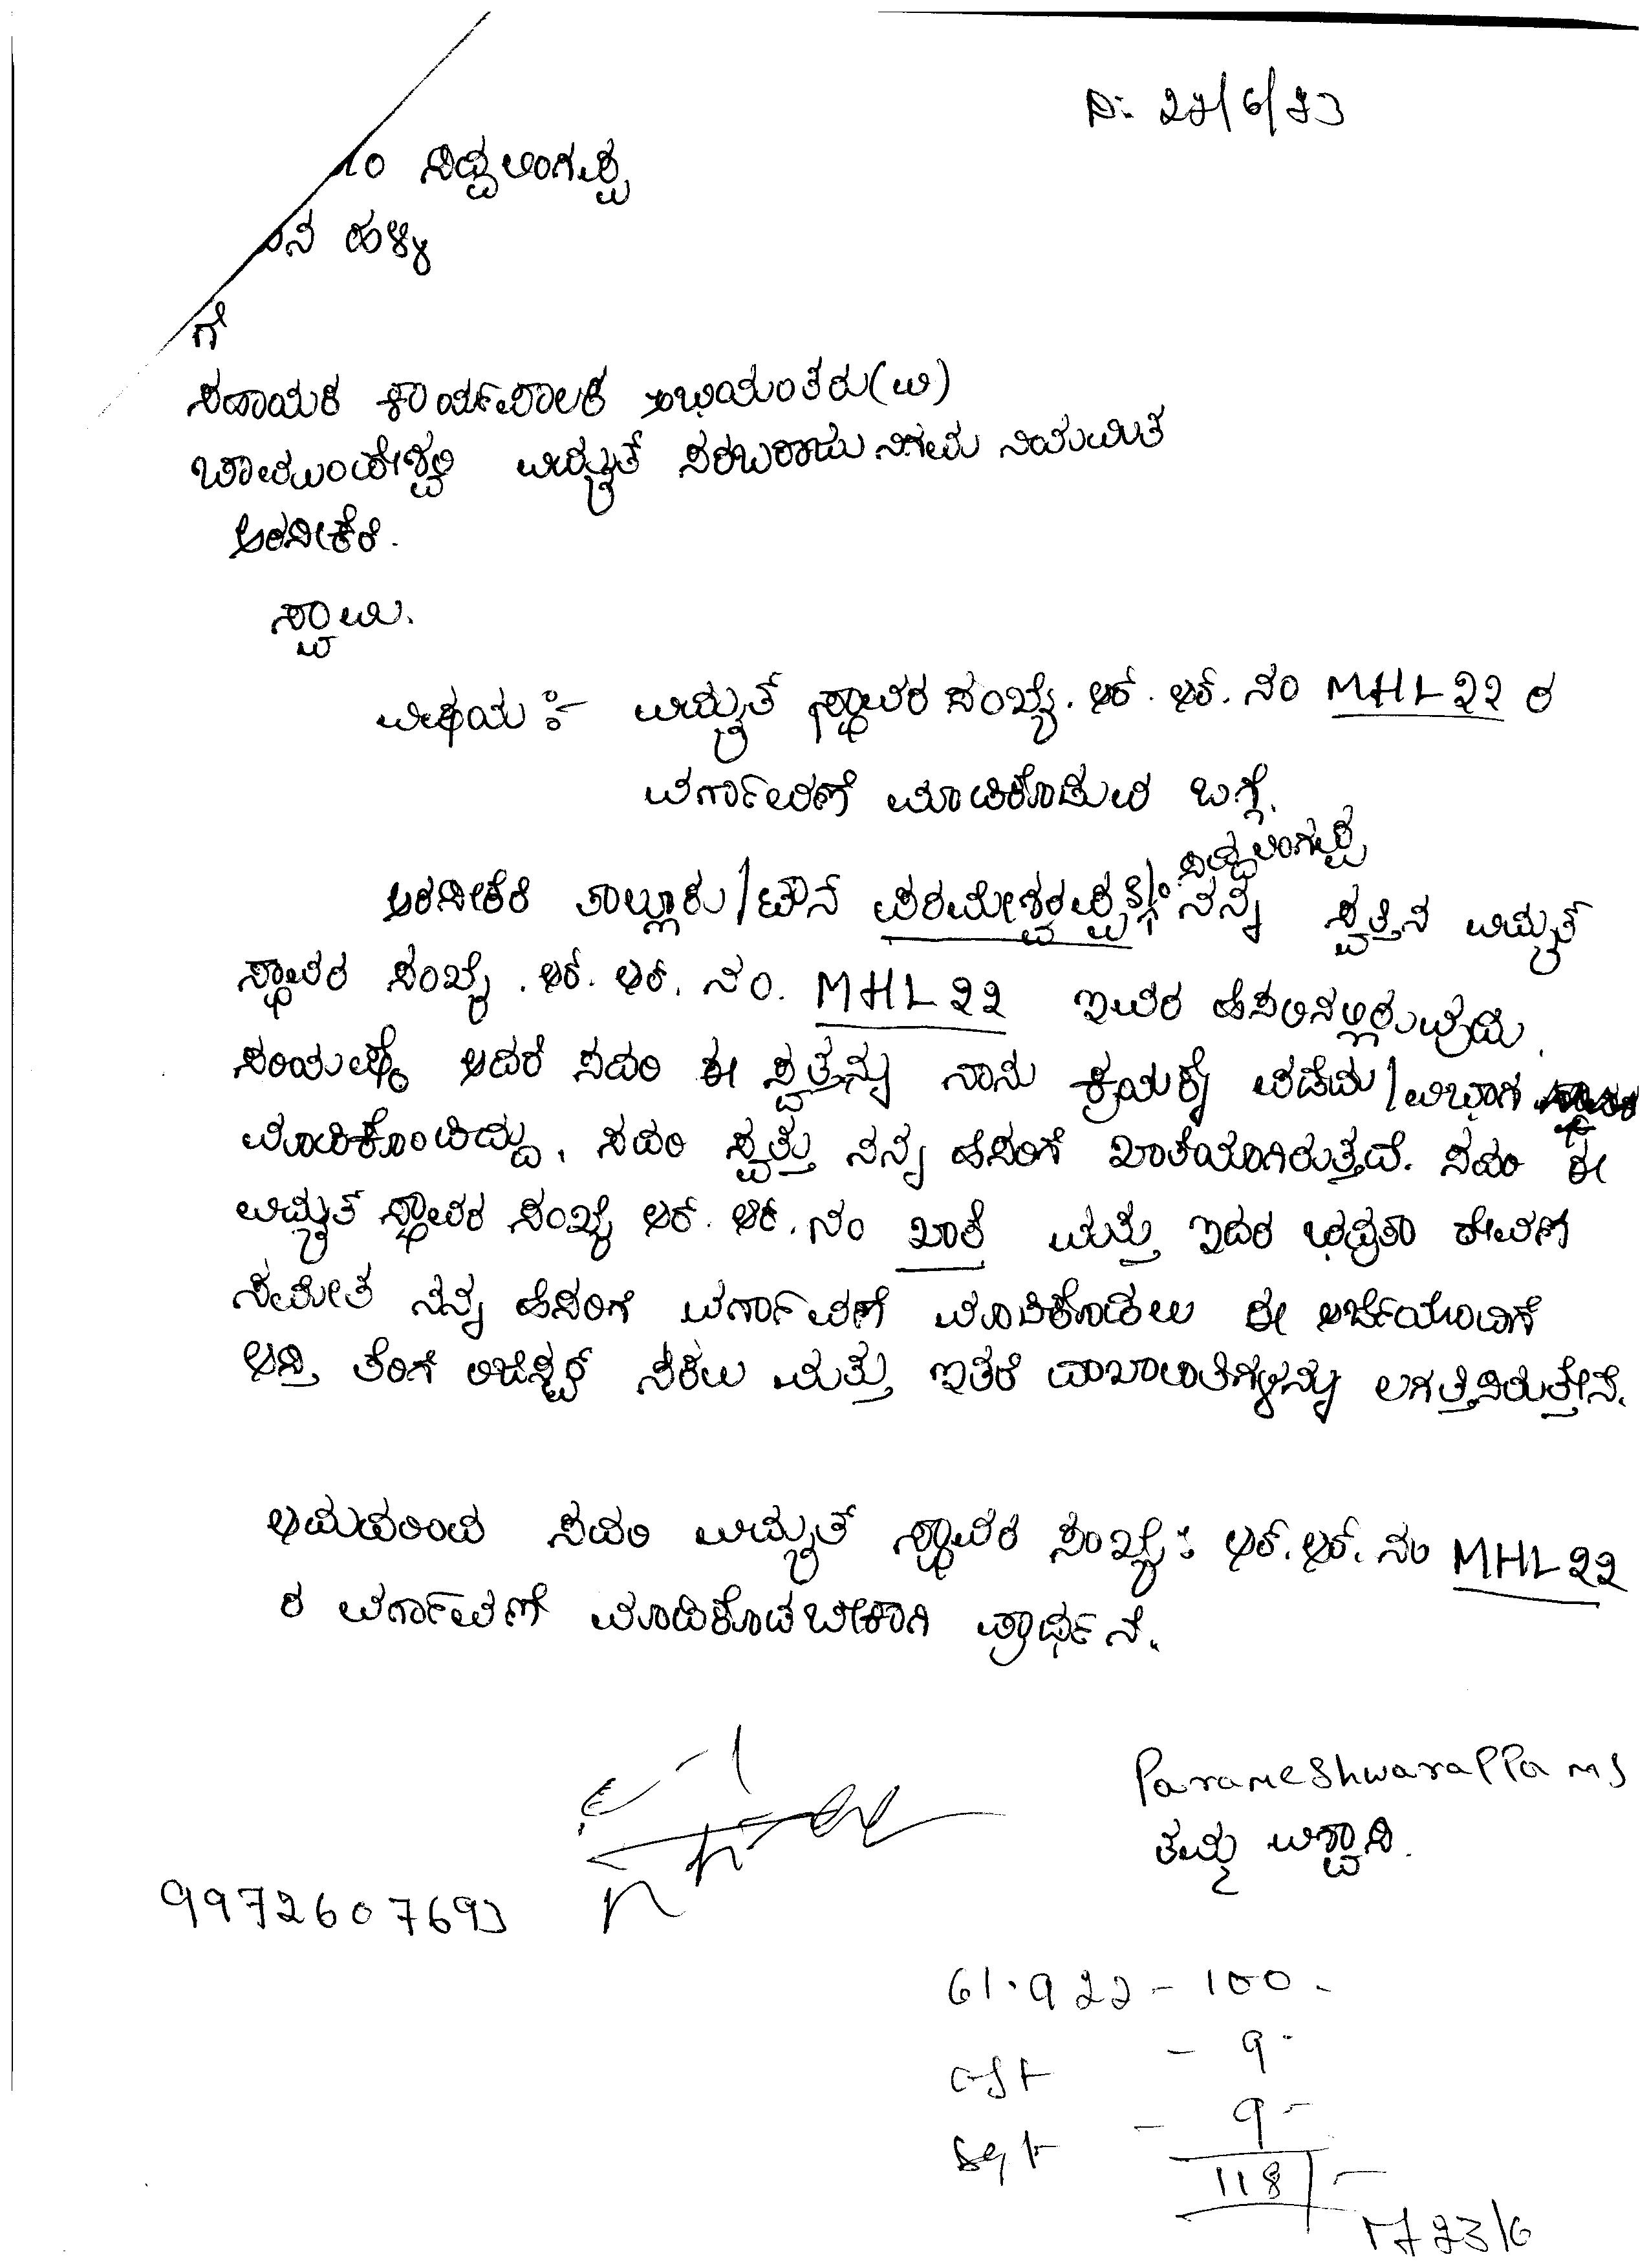 ದಿ: 27/6/23
ಸಿದ್ದಲಿಂಗಪ್ಪ
ಹಳ್ಳಿ
ಗೆ
ಸಹಾಯಕ ಕಾರ್ಯಪಾಲಕ ಅಭಿಯಂತರು(ವಿ)
ಚಾಮುಂಡೇಶ್ವರಿ ವಿದ್ಯುತ್ ಸರಬರಾಜು ನಿಗಮ ನಿಯಮಿತ
ಅರಸೀಕೆರೆ.
ಸ್ವಾಮಿ.
ವಿಷಯ :- ವಿದ್ಯುತ್ ಸ್ಥಾವರ ಸಂಖ್ಯೆ. ಆರ್. ಆರ್. ನಂ MHL 22 ರ
ವರ್ಗಾವಣೆ ಮಾಡಿಕೊಡುವ ಬಗ್ಗೆ.
ಅರಸೀಕೆರೆ ತಾಲ್ಲೂಕು/ಟೌನ್ ಪರಮೇಶ್ವರಪ್ಪ S/o ಸಿದ್ದಲಿಂಗಪ್ಪ ನನ್ನ ಸ್ವತ್ತಿನ ವಿದ್ಯುತ್
ಸ್ಥಾವರ ಸಂಖ್ಯೆ. ಆರ್. ಆರ್. ನಂ. MHL 22 ಇವರ ಹೆಸರಿನಲ್ಲಿರುವುದು
ಸರಿಯಷ್ಟೆ ಆದರೆ ಸದರಿ ಈ ಸ್ವತ್ತನ್ನು ನಾನು ಕ್ರಯಕ್ಕೆ ಪಡೆದು/ವಿಭಾಗ
ಮಾಡಿಕೊಂಡಿದ್ದು, ಸದರಿ ಸ್ವತ್ತು ನನ್ನ ಹೆಸರಿಗೆ ಖಾತೆಯಾಗಿರುತ್ತದೆ. ಸದರಿ ಈ
ವಿದ್ಯುತ್ ಸ್ಥಾವರ ಸಂಖ್ಯೆ ಆರ್. ಆರ್. ನಂ ಖಾತೆ ಮತ್ತು ಇದರ ಭದ್ರತಾ ಠೇವಣಿ
ಸಮೇತ ನನ್ನ ಹೆಸರಿಗೆ ವರ್ಗಾವಣೆ ಮಾಡಿಕೊಡಲು ಈ ಅರ್ಜಿಯೊಂದಿಗೆ
ಆಸ್ತಿ ತೆರಿಗೆ ರಿಜಿಸ್ಟರ್ ನಕಲು ಮತ್ತು ಇತರೆ ದಾಖಲಾತಿಗಳನ್ನು ಲಗತ್ತಿಸಿರುತ್ತೇನೆ.
ಆದುದರಿಂದ ಸದರಿ ವಿದ್ಯುತ್ ಸ್ಥಾವರ ಸಂಖ್ಯೆ: ಆರ್. ಆರ್. ನಂ MHL 22
ರ ವರ್ಗಾವಣೆ ಮಾಡಿಕೊಡಬೇಕಾಗಿ ಪ್ರಾರ್ಥನೆ.
Parameshwarappa MS
ತಮ್ಮ ವಿಶ್ವಾಸಿ.
9972607693
61.922 - 100 -
- 9 -
- 9 -
118/-